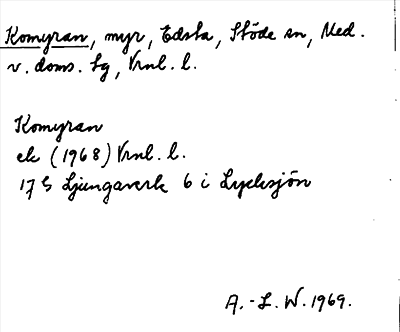 Komyran, myr, Edsta, Stöde sn, Med.
v. doms. tg, Vrnl. l.
Komyran
ek (1968) Vrnl. l.
17 S Ljungaverk 6 i Lycksjön
A.-L. W. 1969.